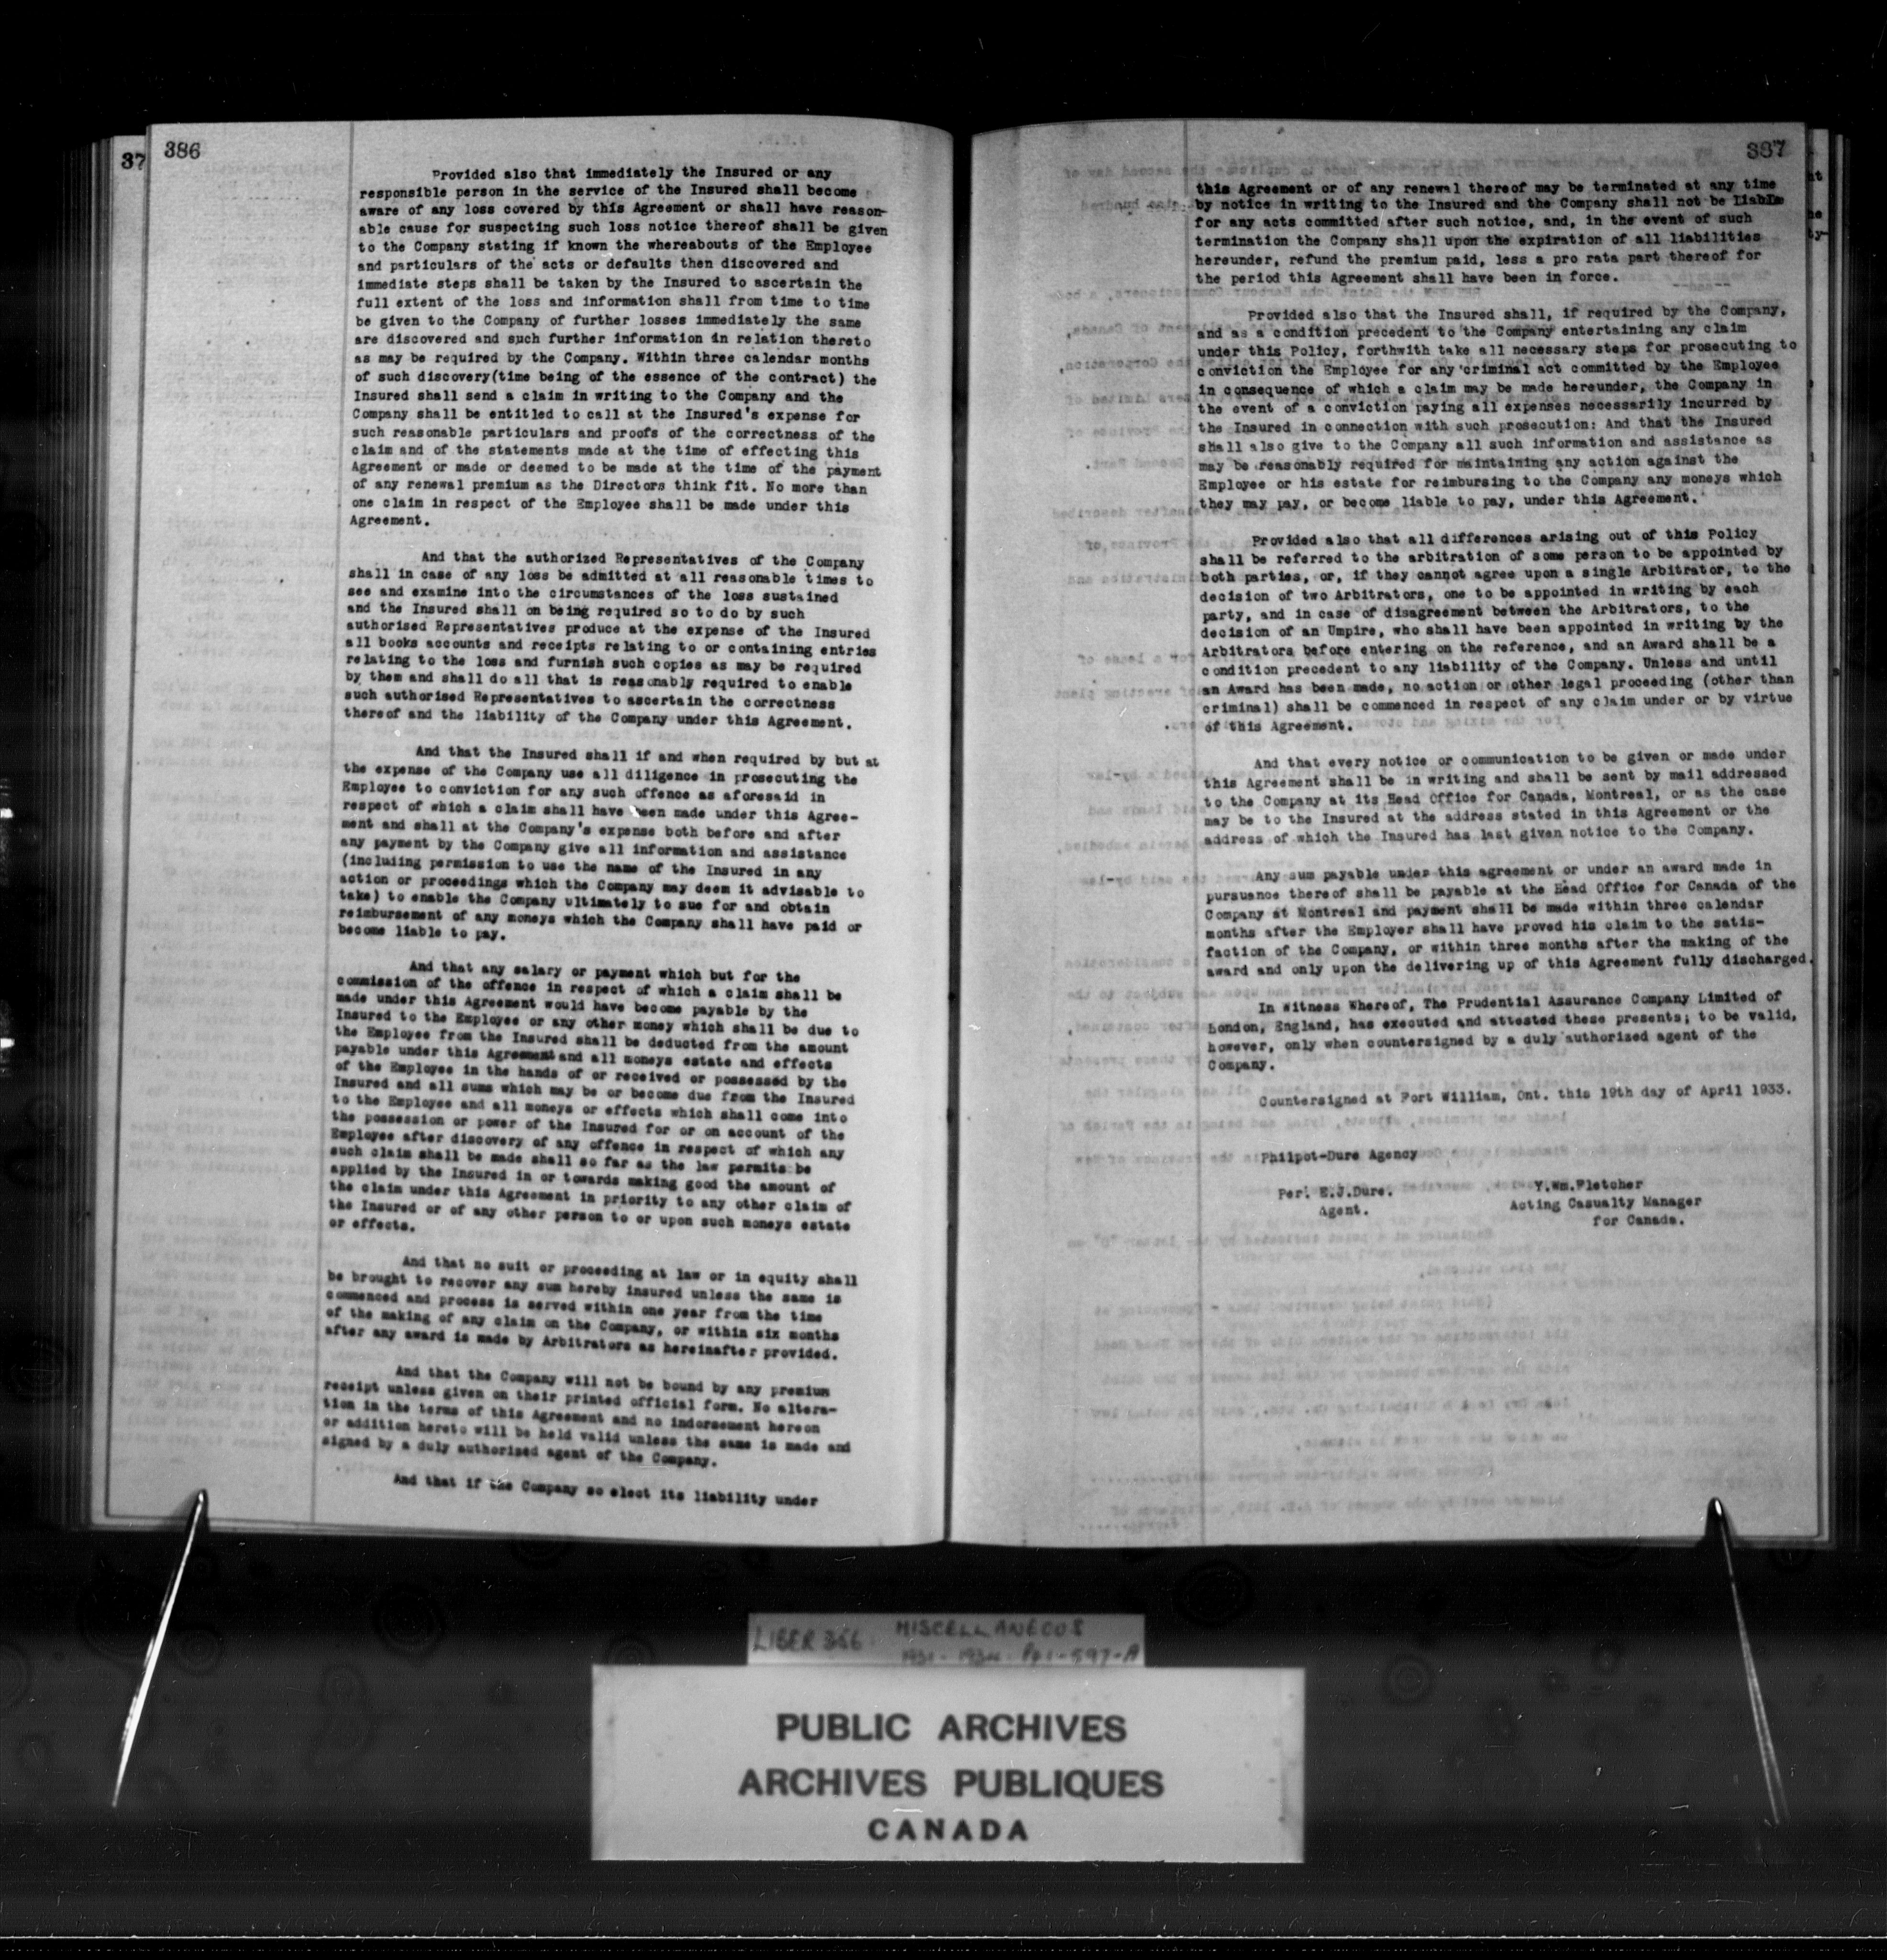 37
386
Provided also that immediately the Insured or any
responsible person in the service of the Insured shall become
aware of any loss covered by this Agreement or shall have reason-
able cause for suspecting such loss notice thereof shall be given
to the Company stating if known the whereabouts of the Employee
and particulars of the acts or defaults then discovered and
immediate steps shall be taken by the Insured to ascertain the
full extent of the loss and information shall from time to time
be given to the Company of further losses immediately the same
are discovered and such further information in relation thereto
as may be required by the Company. Within three calendar months
of such discovery(time being of the essence of the contract) the
Insured shall send a claim in writing to the Company and the
Company shall be entitled to call at the Insured's expense for
such reasonable particulars and proofs of the correctness of the
claim and of the statements made at the time of effecting this
Agreement or made or deemed to be made at the time of the payment
of any renewal premium as the Directors think fit. No more than
one claim in respect of the Employee shall be made under this
Agreement.
And that the authorized Representatives of the Company
shall in case of any loss be admitted at all reasonable times to
see and examine into the circumstances of the loss sustained
and the Insured shall on being required so to do by such
authorised Representatives produce at the expense of the Insured
all books accounts and receipts relating to or containing entries
relating to the loss and furnish such copies as may be required
by them and shall do all that is reasonably required to enable
such authorised Representatives to ascertain the correctness
thereof and the liability of the Company under this Agreement.
And that the Insured shall if and when required by but at
the expense of the Company use all diligence in prosecuting the
Employee to conviction for any such offence as aforesaid in
respect of which a claim shall have been made under this Agree-
ment and shall at the Company's expense both before and after
any payment by the Company give all information and assistance
(including permission to use the name of the Insured in any
action or proceedings which the Company may deem it advisable to
take) to enable the Company ultimately to sue for and obtain
reimbursement of any moneys which the Company shall have paid or
become liable to pay.
And that any salary or payment which but for the
commission of the offence in respect of which a claim shall be
made under this Agreement would have become payable by the
Insured to the Employee or any other money which shall be due to
the Employee from the Insured shall be deducted from the amount
payable under this Agreement and all moneys estate and effects
of the Employee in the hands of or received or possessed by the
Insured and all sums which may be or become due from the Insured
to the Employee and all moneys or effects which shall come into
the possession or power of the Insured for or on account of the
Employee after discovery of any offence in respect of which any
such claim shall be made shall so far as the law permits be
applied by the Insured in or towards making good the amount of
the claim under this Agreement in priority to any other claim of
the Insured or of any other person to or upon such moneys estate
or effects.
And that no suit or proceeding at law or in equity shall
be brought to recover any sum hereby insured unless the same is
commenced and process is served within one year from the time
of the making of any claim on the Company, or within six months
after any award is made by Arbitrators as hereinafter provided.
And that the Company will not be bound by any premium
receipt unless given on their printed official form. No altera-
tion in the terms of this Agreement and no indorsement hereon
or addition hereto will be held valid unless the same is made and
signed by a duly authorized agent of the Company.
And that if the Company so elect its liability under
387
this Agreement or of any renewal thereof may be terminated at any time
by notice in writing to the Insured and the Company shall not be liable
for any acts committed after such notice, and, in the event of such
termination the Company shall upon the expiration of all liabilities
hereunder, refund the premium paid, less a pro rata part thereof for
the period this Agreement shall have been in force.
Provided also that the Insured shall, if required by the Company,
and as a condition precedent to the Company entertaining any claim
under this Policy, forthwith take all necessary steps for prosecuting to
conviction the Employee for any criminal act committed by the Employee
in consequence of which a claim may be made hereunder, the Company in
the event of a conviction paying all expenses necessarily incurred by
the Insured in connection with such prosecution: And that the Insured
shall also give to the Company all such information and assistance as
may be reasonably required for maintaining any action against the
Employee or his estate for reimbursing to the Company any moneys which
they may pay, or become liable to pay, under this Agreement.
Provided also that all differences arising out of this Policy
shall be referred to the arbitration of some person to be appointed by
both parties, or, if they cannot agree upon a single Arbitrator, to the
decision of two Arbitrators, one to be appointed in writing by each
party, and in case of disagreement between the Arbitrators, to the
decision of an Umpire, who shall have been appointed in writing by the
Arbitrators before entering on the reference, and an Award shall be a
condition precedent to any liability of the Company. Unless and until
an Award has been made, no action or other legal proceeding (other than
criminal) shall be commenced in respect of any claim under or by virtue
of this Agreement.
And that every notice or communication to be given or made under
this Agreement shall be in writing and shall be sent by mail addressed
to the Company at its Head Office for Canada, Montreal, or as the case
may be to the Insured at the address stated in this Agreement or the
address of which the Insured has last given notice to the Company.
Any sum payable under this agreement or under an award made in
pursuance thereof shall be payable at the Head Office for Canada of the
Company at Montreal and payment shall be made within three calendar
months after the Employer shall have proved his claim to the satis-
faction of the Company, or within three months after the making of the
award and only upon the delivering up of this Agreement fully discharged.
In Witness Whereof, The Prudential Assurance Company Limited of
London, England, has executed and attested these presents; to be valid,
however, only when countersigned by a duly authorized agent of the
Company.
Countersigned at Fort William, Ont. this 19th day of April 1933.
Philpot-Dure Agency
Per. E.J.Dure.
Agent.
Y.Wm.Fletcher
Acting Casualty Manager
for Canada.
LIBER 366 MISCELLANEOUS
1931-1934 P41-597-A
PUBLIC ARCHIVES
ARCHIVES PUBLIQUES
CANADA